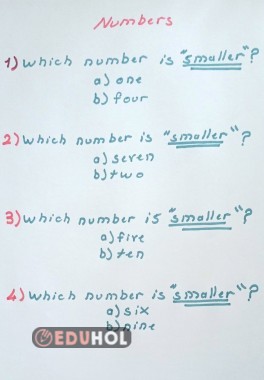 Numbers
1) Which number is "smaller"?
a) one
b) four
2) Which number is "smaller"?
a) seven
b) two
3) Which number is "smaller"?
a) five
b) ten
4) Which number is "smaller"?
a) six
b) nine
EDUHOL